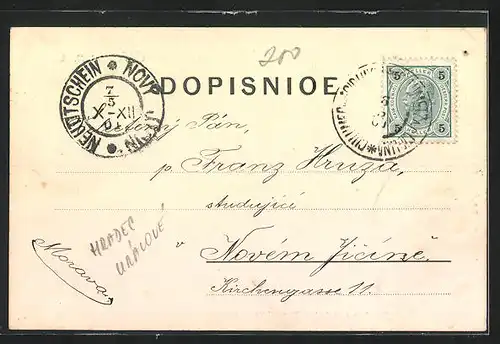 200
DOPISNIOE.
NEUTITSCHEIN * NOVÝ JIČÍN *
7/5
X-XII
01
5 5
5 5
Pán,
p. Franz Hruza,
studující
v Novém Jičíně.
Kirchengasse 11.
Morava.
HRADEC
KRÁLOVÉ